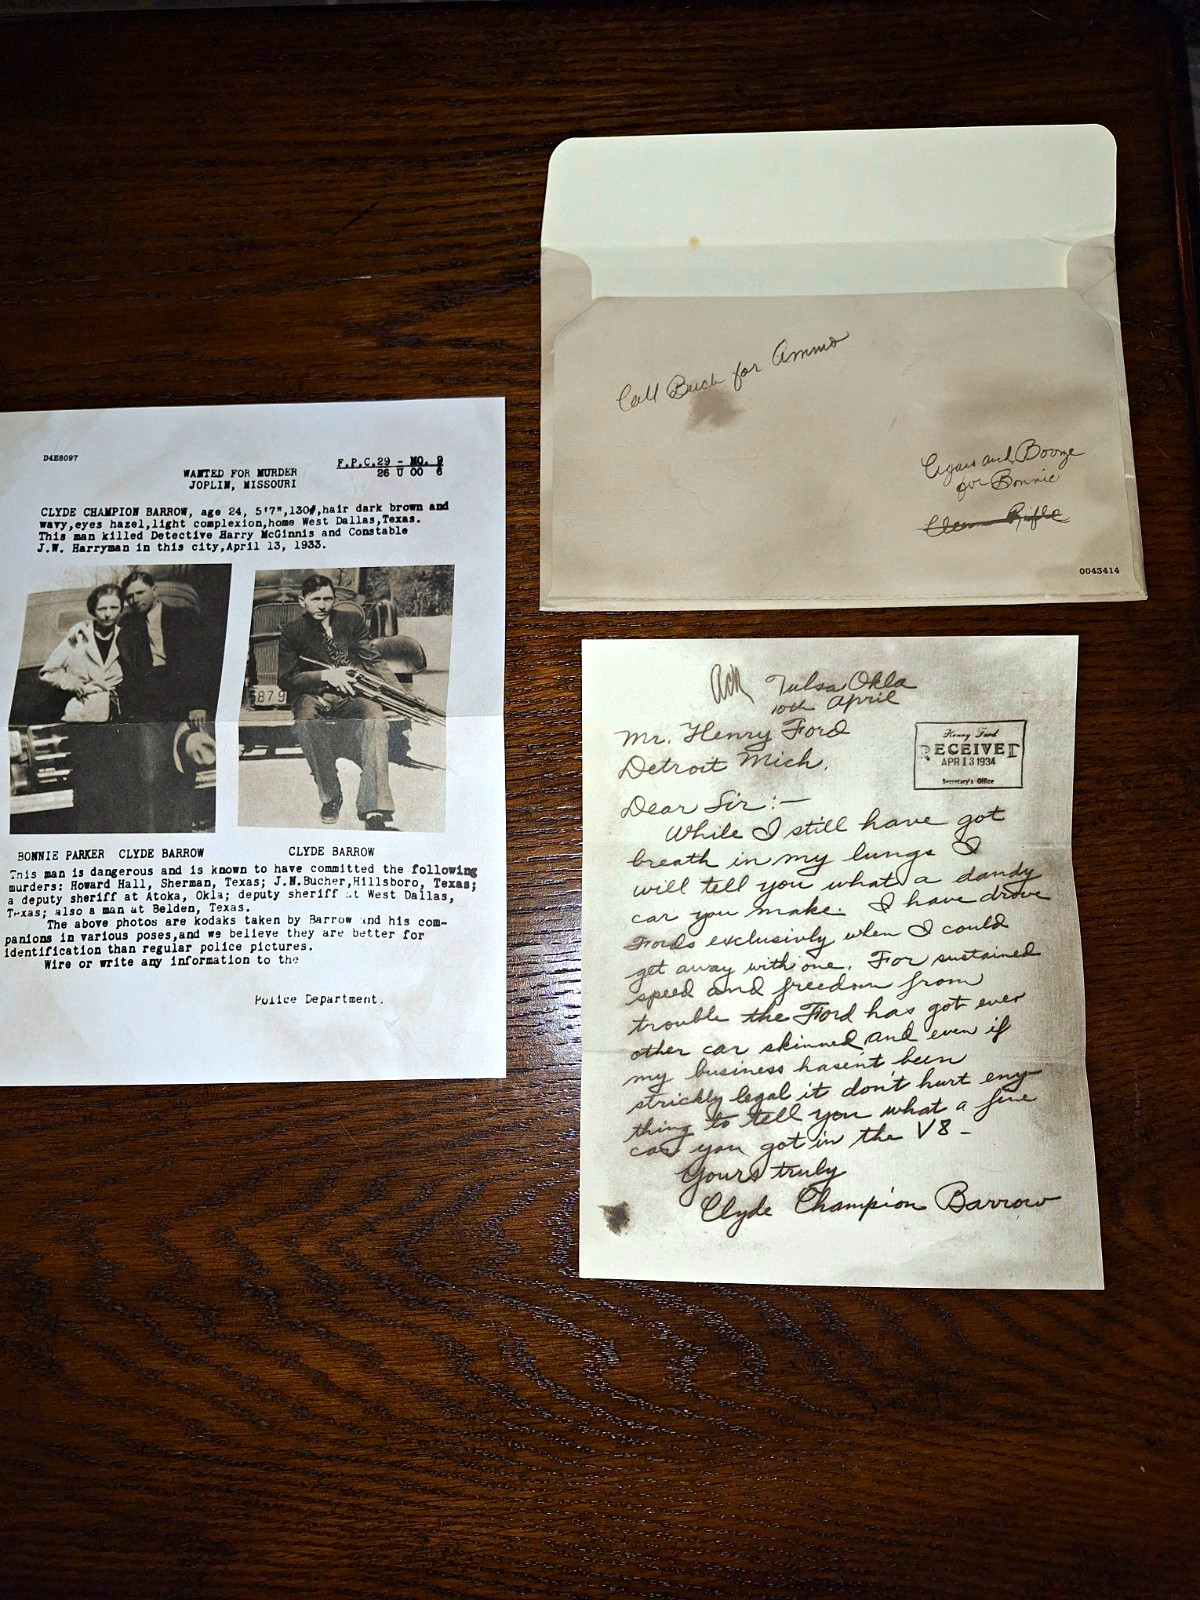 D4E8097
F.P.C.29 - NO. 9
26 U 00 6
WANTED FOR MURDER
JOPLIN, MISSOURI
CLYDE CHAMPION BARROW, age 24, 5'7",130#,hair dark brown and
wavy,eyes hazel,light complexion,home West Dallas,Texas.
This man killed Detective Harry McGinnis and Constable
J.W. Harryman in this city,April 13, 1933.
879
BONNIE PARKER CLYDE BARROW
CLYDE BARROW
This man is dangerous and is known to have committed the following
murders: Howard Hall, Sherman, Texas; J.N.Bucher,Hillsboro, Texas;
a deputy sheriff at Atoka, Okla; deputy sheriff at West Dallas,
Texas; also a man at Belden, Texas.
The above photos are kodaks taken by Barrow and his com-
panions in various poses,and we believe they are better for
identification than regular police pictures.
Wire or write any information to the
Police Department.
Call Buck for Ammo
Cigars and Booze
for Bonnie
Clean Rifle
0043414
Ack
Tulsa Okla
10th April
Mr. Henry Ford
Detroit Mich.
Henry Ford
RECEIVED
APR 13 1934
Secretary's Office
Dear Sir:—
While I still have got
breath in my lungs I
will tell you what a dandy
car you make. I have drove
Fords exclusivly when I could
get away with one. For sustained
speed and freedom from
trouble the Ford has got ever
other car skinned and even if
my business hasen't been
strickly legal it don't hurt eny-
thing to tell you what a fine
car you got in the V8 -
Yours truly
Clyde Champion Barrow